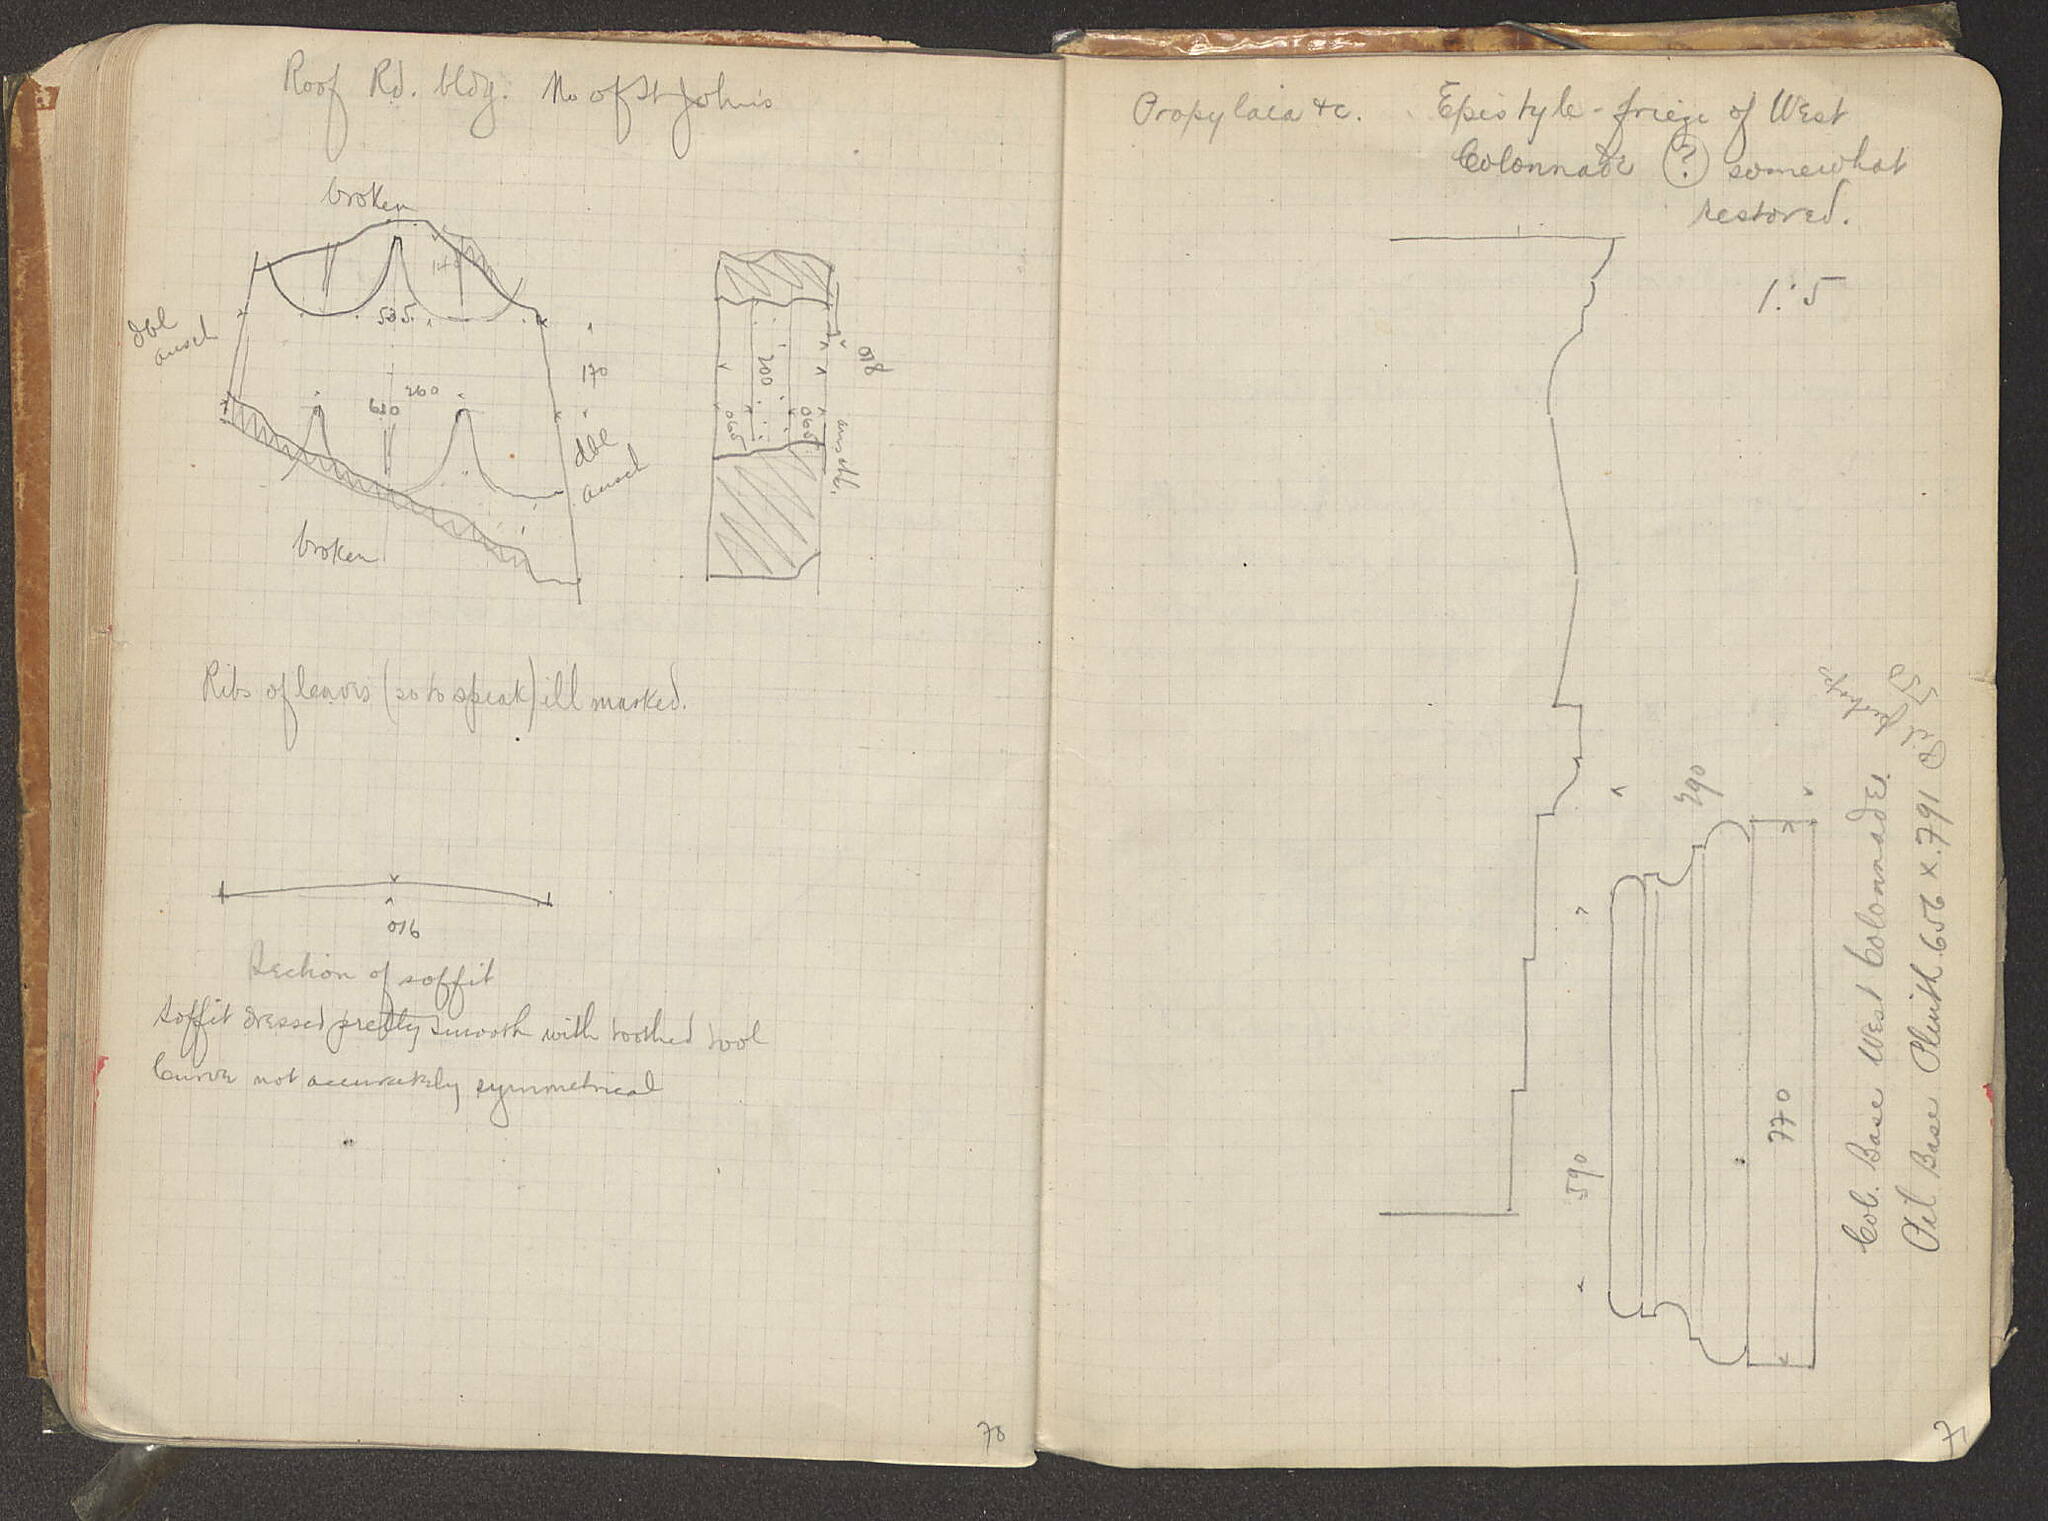 Roof Rd. bldg. No of St John's
broken
140
535
dbl
ausch
170
260
630
dbl
ausch
broken
200
018
065
065
Ribs of leaves (so to speak) ill marked.
016
Section of soffit
Soffit dressed pretty smooth with toothed tool
Curve not accurately symmetrical
70
Propylaia &c. Epistyle-frieze of West
Colonnade ? somewhat
restored.
1:5
290
590
770
Col. Base West Colonnade.
Pil Base Plinth .656 x .791
perhaps
71